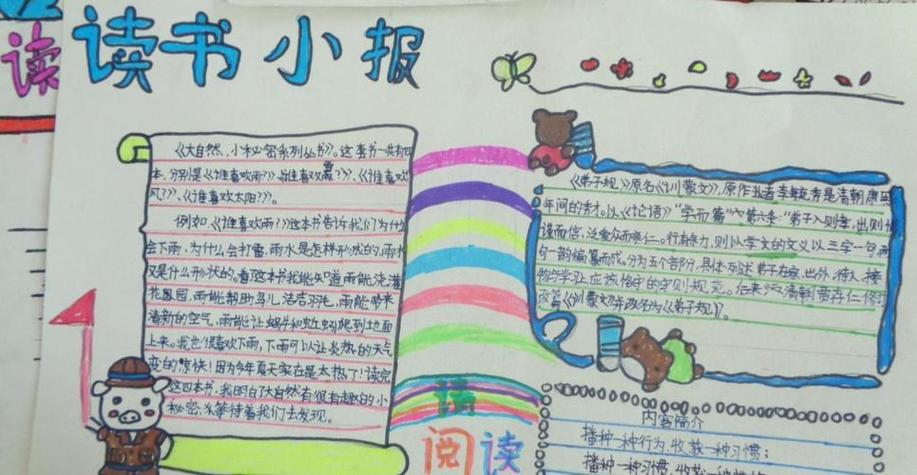 读
读书小报
《大自然,小秘密系列丛书》。这套书一共有四
本,分别是《谁喜欢雨?》、《谁喜欢雪?》、《谁喜欢
风?》、《谁喜欢太阳?》。
例如《谁喜欢雨?》这本书告诉我们为什么
会下雨,为什么会打雷,雨水是怎样形成的,雨水
又是什么形状的。看这本书我能知道雨能浇灌
花园,雨能帮助鸟儿洁白羽毛,雨能带来
清新的空气,雨能让蜗牛和蚯蚓爬到地面
上来。我也很喜欢下雨,下雨可以让炎热的天气
变的惊快!因为今年夏天实在是太热了!读完
这四本书,我明白了大自然有很有趣的小
秘密,等待着我们去发现。
《弟子规》原名《训蒙文》,原作者李毓秀是清朝康熙
年间的秀才。以《论语》"学而篇"第六条:"弟子入则孝,出则悌
谨而信,泛爱众而亲仁。行有余力,则以学文的文义以三字一句,两
句一韵编纂而成。分为五个部分,具体列述弟子在家,出外,待人,接
物与学业应该恪守的守则规范。后来清朝贾存仁修订
改篇《训蒙文》并改名为《弟子规》。
读
阅读
内容简介
播种一种行为,收获一种习惯;
播种一种习惯,收获一种